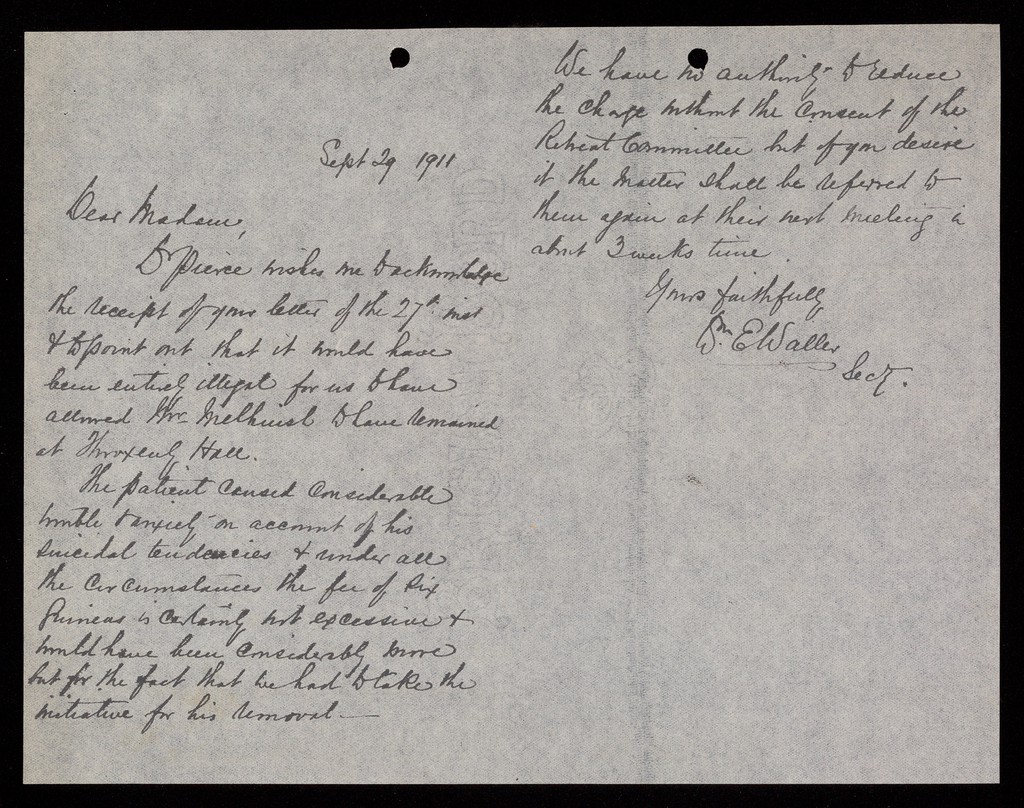 Sept 29 1911
Dear Madam,
Dr Pierce wishes me to acknowledge
the receipt of your letter of the 27th inst
& to point out that it would have
been entirely illegal for us to have
allowed Mr Melhuish to have remained
at Throxenby Hall.
The patient caused considerable
trouble & anxiety on account of his
suicidal tendencies & under all
the circumstances the fee of six
guineas is certainly not excessive &
would have been considerably more
but for the fact that we had to take the
initiative for his removal —
We have no authority to reduce
the charge without the consent of the
Retreat Committee but if you desire
it the matter shall be referred to
them again at their next meeting in
about 3 weeks time.
Yours faithfully
Wm. E Waller
Secy.